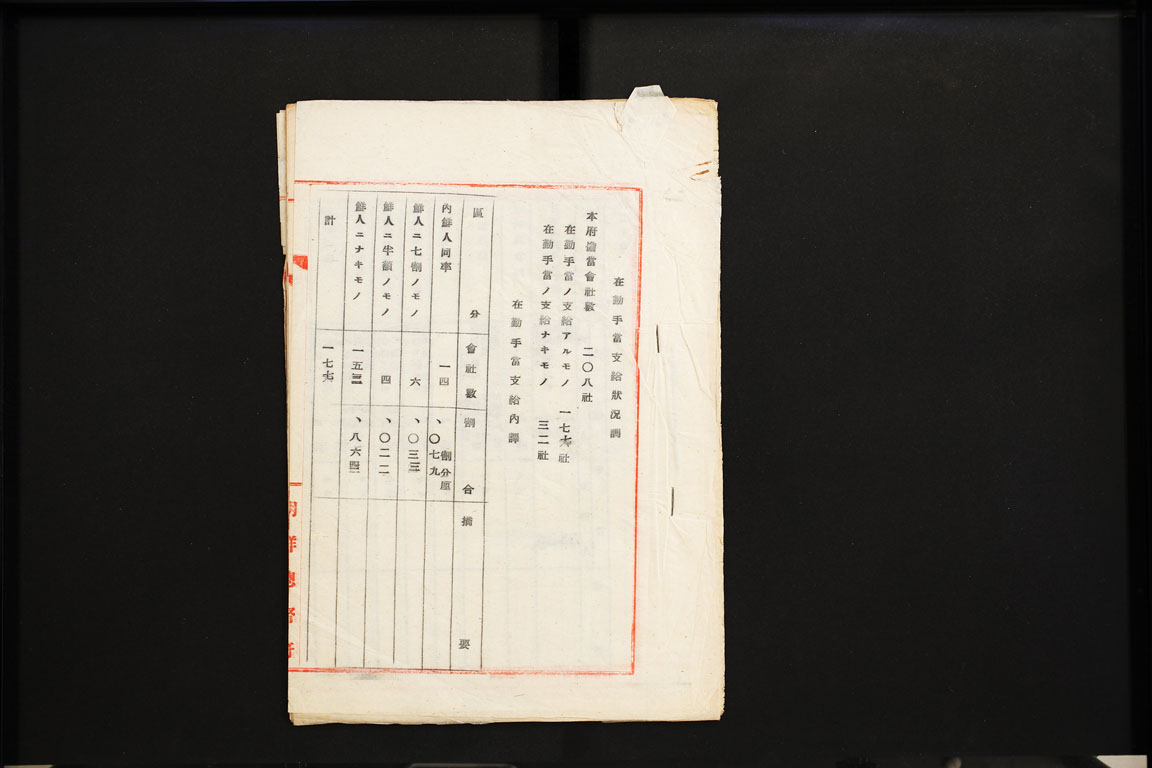 在勤手當支給狀況調
本府擔當會社數 二〇八社
在勤手當ノ支給アルモノ 社
在勤手當ノ支給ナキモノ 三二社
在勤手當支給內譯
區分 會社數 割合 摘要
內鮮人同率 一四 、〇七九 割分厘
鮮人ニ七割ノモノ 六 、〇三三
鮮人ニ半額ノモノ 四 、〇二二
鮮人ニナキモノ
計
朝鮮總督府